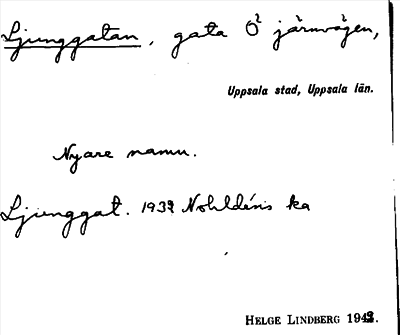 Ljunggatan, gata Ö² järnvägen,
Uppsala stad, Uppsala län.
Nyare namn.
Ljunggat. 1932 Nohldéns ka
HELGE LINDBERG 1942.